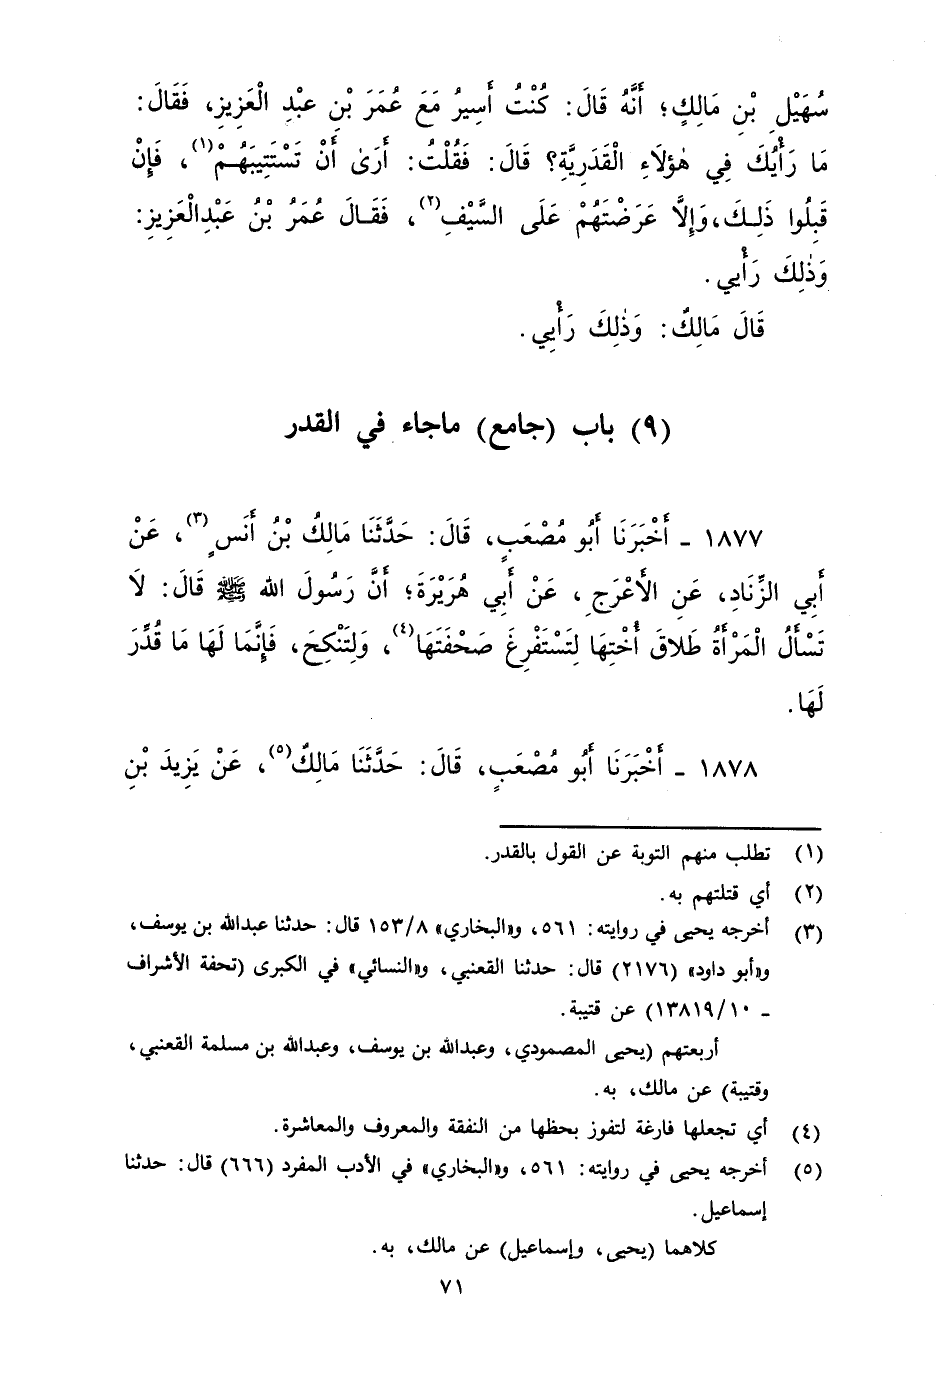 سُهَيْلِ بْنِ مَالِكٍ؛ أَنَّهُ قَالَ: كُنْتُ أَسِيرُ مَعَ عُمَرَ بْنِ عبْدِ الْعَزِيزِ، فَقَالَ:
مَا رَأْيُكَ فِي هٰؤلَاءِ الْقَدَرِيَّةِ؟ قَالَ: فَقُلْتُ: أَرَىٰ أَنْ تَسْتَتِيبَهُمْ(١)، فَإِنْ
قَبِلُوا ذَلِكَ، وَإِلَّا عَرَضْتَهُمْ عَلَى السَّيْفِ(٢)، فَقَالَ عُمَرُ بْنُ عَبْدِالْعَزِيزِ:
وَذٰلِكَ رَأْيي.
قَالَ مَالِكٌ: وَذٰلِكَ رَأْيِي.
(٩) باب (جامع) ماجاء في القدر
١٨٧٧ - أَخْبَرَنَا أَبُو مُصْعَبٍ، قَالَ: حَدَّثَنَا مَالِكُ بْنُ أَنَسٍ(٣)، عَنْ
أَبِي الزِّنَادِ، عَنِ الأَعْرَجِ، عَنْ أَبِي هُرَيْرَةَ؛ أَنَّ رَسُولَ الله ﷺ قَالَ: لَا
تَسْأَلُ الْمَرْأَةُ طَلاقَ أُخْتِهَا لِتَسْتَفْرِغَ صَحْفَتَهَا(٤)، وَلِتَنْكِحَ، فَإِنَّمَا لَهَا مَا قُدِّرَ
لَهَا.
١٨٧٨ - أَخْبَرَنَا أَبُو مُصْعَبٍ، قَالَ: حَدَّثَنَا مَالِكٌ(٥)، عَنْ يَزِيدَ بْنِ
(١) تطلب منهم التوبة عن القول بالقدر.
(٢) أي قتلتهم به.
(٣) أخرجه يحيى في روايته: ٥٦١، و«البخاري» ١٥٣/٨ قال: حدثنا عبدالله بن يوسف،
و«أبو داود» (٢١٧٦) قال: حدثنا القعنبي، و«النسائي» في الكبرى (تحفة الأشراف
- ١٣٨١٩/١٠) عن قتيبة.
أربعتهم (يحيى المصمودي، وعبدالله بن يوسف، وعبدالله بن مسلمة القعنبي،
وقتيبة) عن مالك، به.
(٤) أي تجعلها فارغة لتفوز بحظها من النفقة والمعروف والمعاشرة.
(٥) أخرجه يحيى في روايته: ٥٦١، و«البخاري» في الأدب المفرد (٦٦٦) قال: حدثنا
إسماعيل.
كلاهما (يحيى، وإسماعيل) عن مالك، به.
٧١